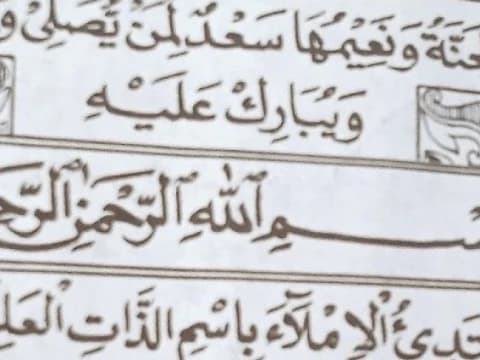 وَنَعِيْمُهَا سَعْدٌ لِمَنْ يُصَلِّيْ
وَيُبَارِكْ عَلَيْهِ
ـسْـمِ ٱللهِ ٱلرَّحْمَنِ ٱلرَّحـ
ـتَدِئُ الْاِمْلَآءَ بِاسْمِ الذَّاتِ الْعَلِـ